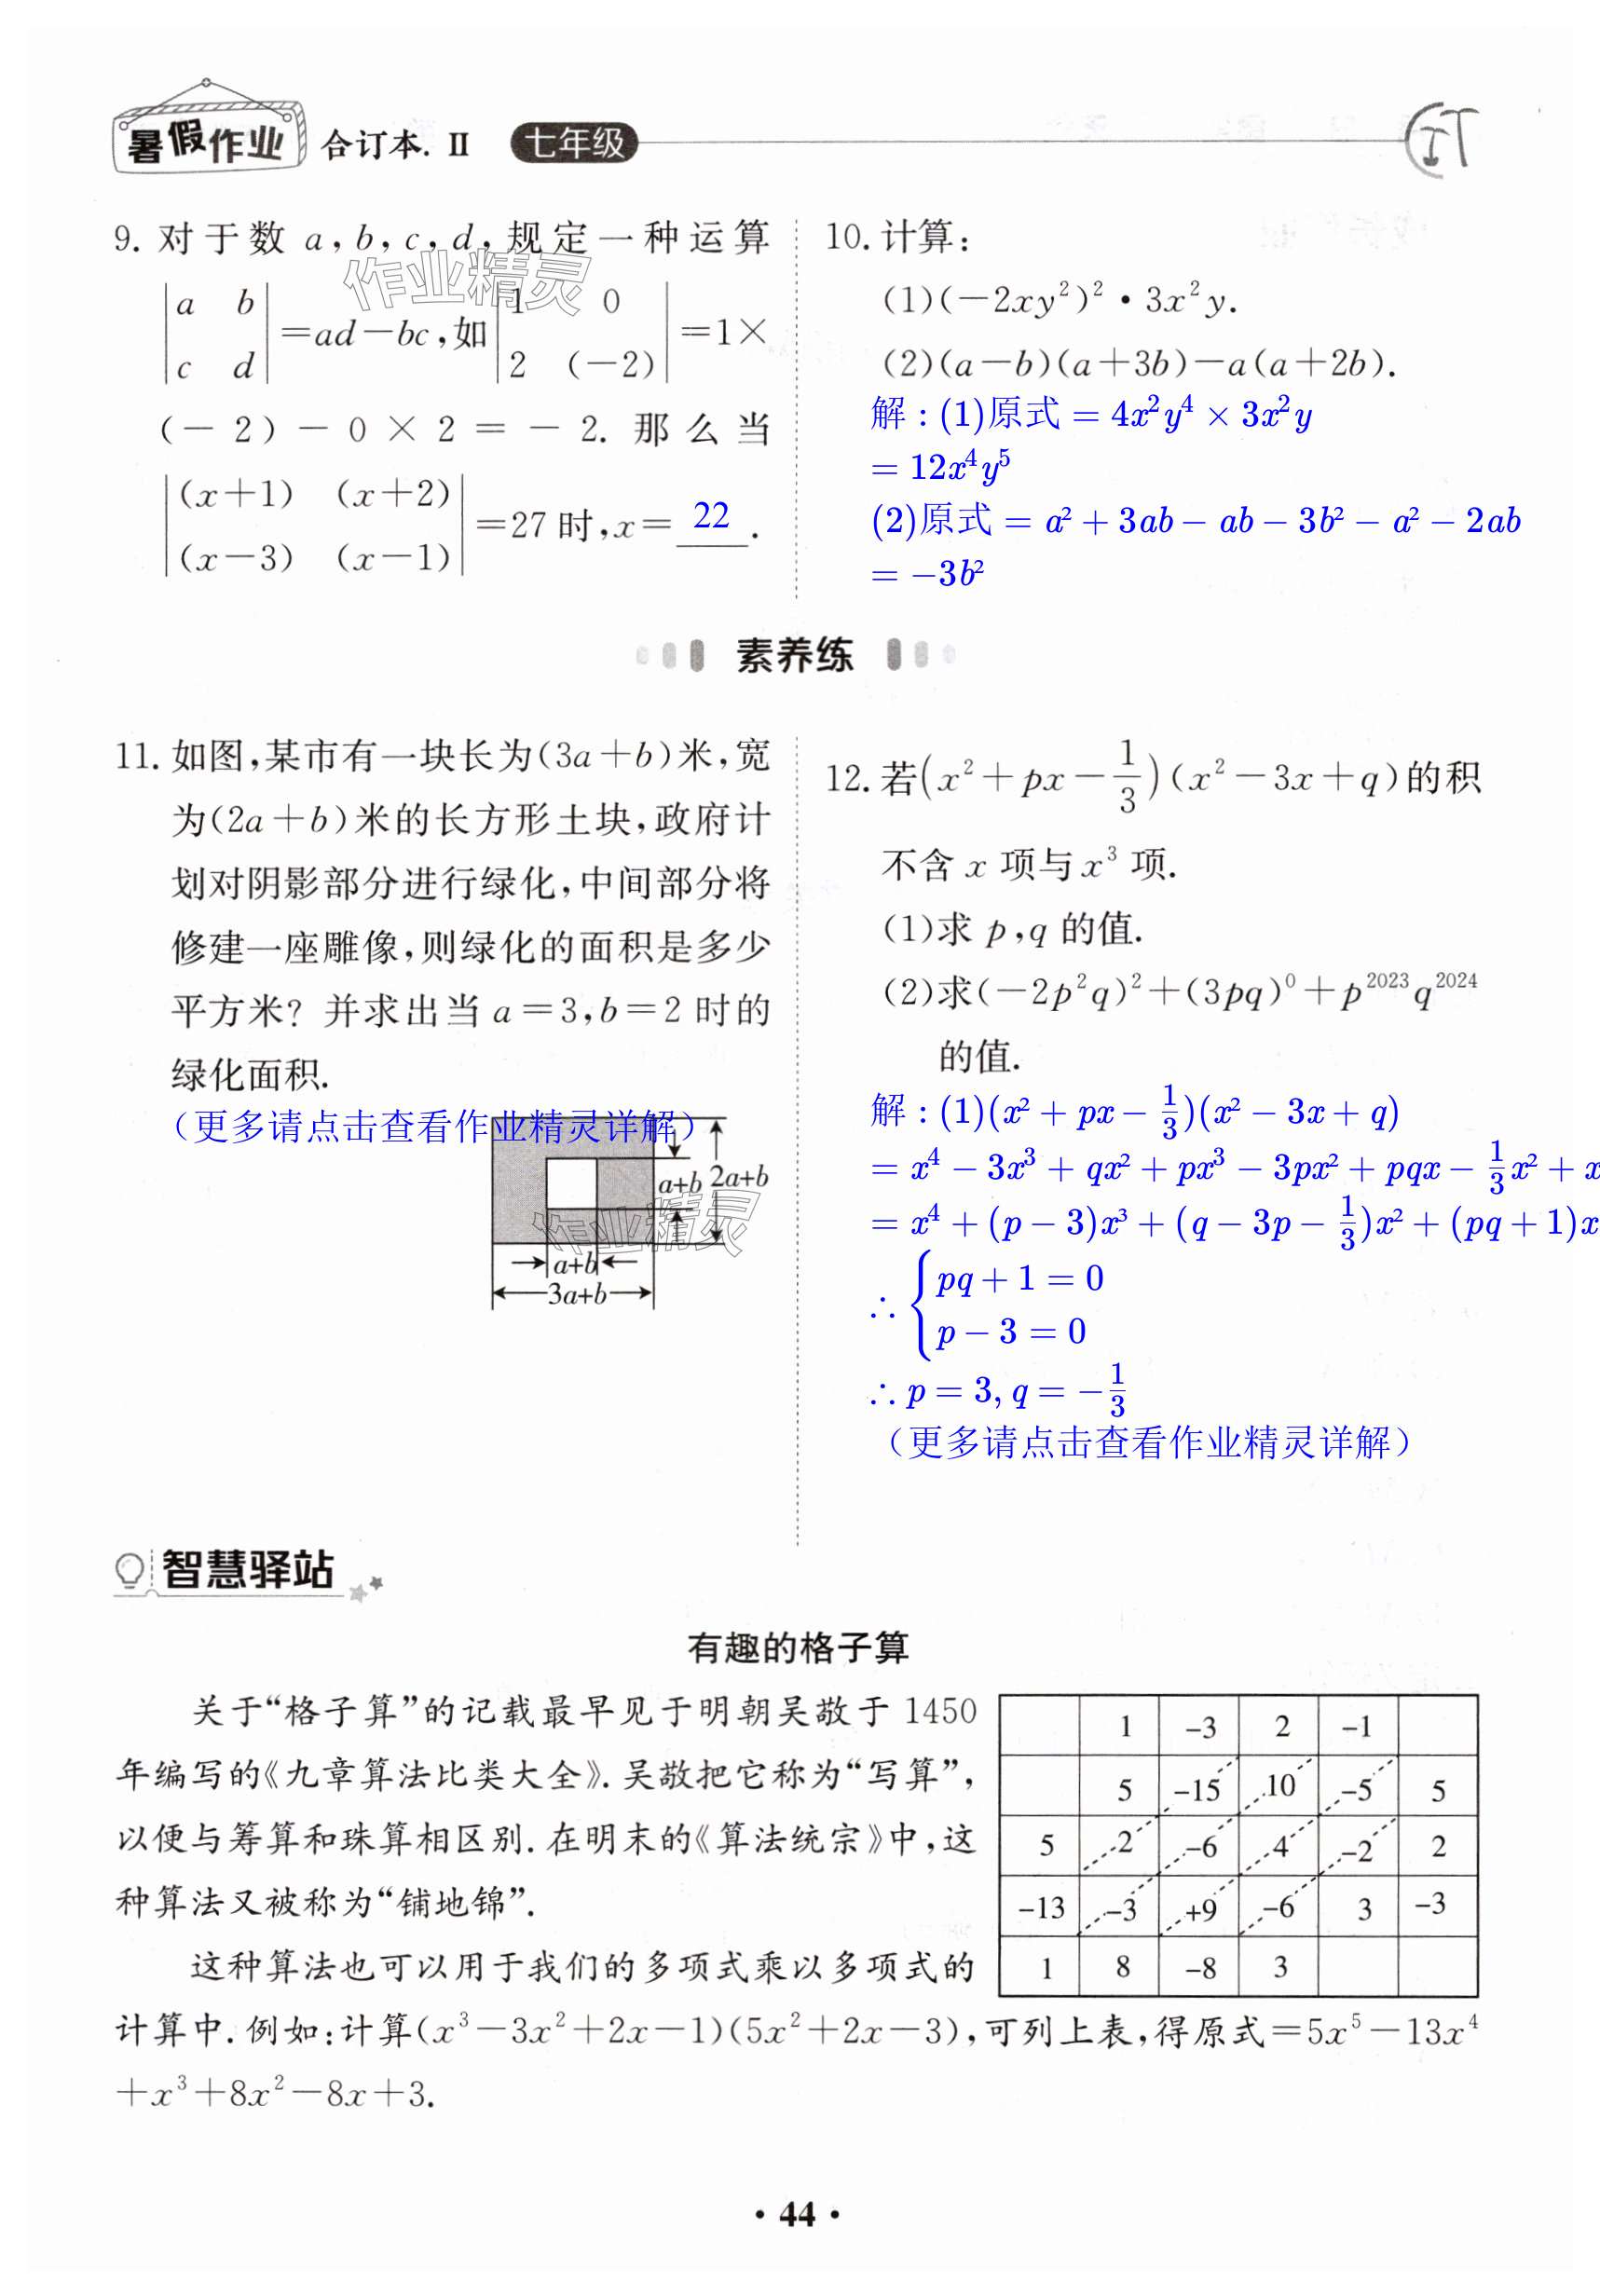 暑假作业 合订本. Ⅱ 七年级
9. 对于数 a,b,c,d,规定一种运算
|a b; c d|=ad-bc,如|1 0; 2 (-2)|=1×
(-2)-0×2=-2. 那么当
|(x+1) (x+2); (x-3) (x-1)|=27时,x= 22 .
作业精灵
10. 计算:
(1)(-2xy²)²·3x²y.
(2)(a-b)(a+3b)-a(a+2b).
解:(1)原式=4x²y⁴×3x²y
=12x⁴y⁵
(2)原式=a²+3ab-ab-3b²-a²-2ab
=-3b²
素养练
11. 如图,某市有一块长为(3a+b)米,宽
为(2a+b)米的长方形土块,政府计
划对阴影部分进行绿化,中间部分将
修建一座雕像,则绿化的面积是多少
平方米? 并求出当a=3,b=2时的
绿化面积.
(更多请点击查看作业精灵详解)
a+b 2a+b
a+b
3a+b
作业精灵
12. 若(x²+px-1/3)(x²-3x+q)的积
不含 x 项与 x³ 项.
(1)求 p,q 的值.
(2)求(-2p²q)²+(3pq)⁰+p²⁰²³q²⁰²⁴
的值.
解:(1)(x²+px-1/3)(x²-3x+q)
=x⁴-3x³+qx²+px³-3px²+pqx-1/3x²+x
=x⁴+(p-3)x³+(q-3p-1/3)x²+(pq+1)x
∴{pq+1=0
p-3=0
∴p=3,q=-1/3
(更多请点击查看作业精灵详解)
智慧驿站
有趣的格子算
关于“格子算”的记载最早见于明朝吴敬于1450
年编写的《九章算法比类大全》. 吴敬把它称为“写算”,
以便与筹算和珠算相区别. 在明末的《算法统宗》中,这
种算法又被称为“铺地锦”.
这种算法也可以用于我们的多项式乘以多项式的
计算中. 例如:计算(x³-3x²+2x-1)(5x²+2x-3),可列上表,得原式=5x⁵-13x⁴
+x³+8x²-8x+3.
1 -3 2 -1
5 -15 10 -5 5
5 2 -6 4 -2 2
-13 -3 +9 -6 3 -3
1 8 -8 3
· 44 ·